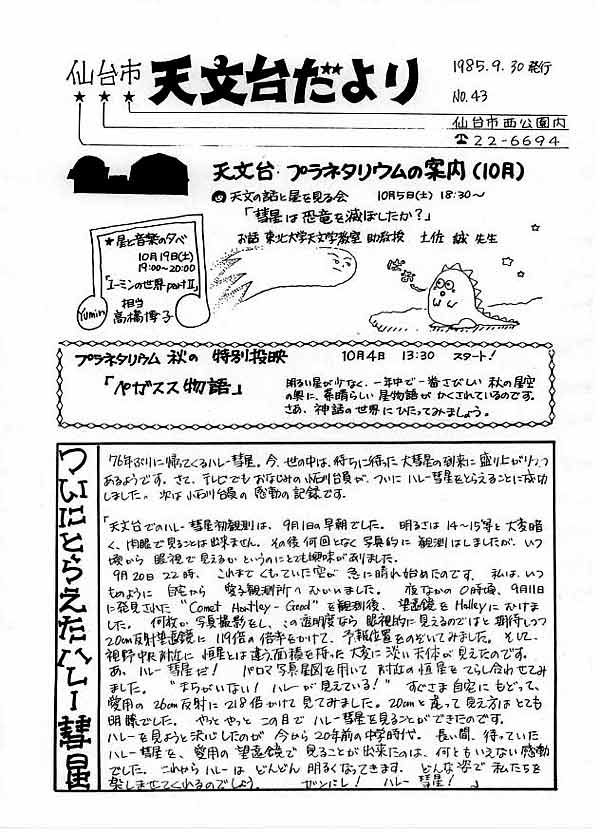 仙台市 天文台だより
1985.9.30 発行
NO.43
仙台市西公園内
☎22-6694
天文台・プラネタリウムの案内(10月)
天文の話と星を見る会 10月5日(土) 18:30〜
「彗星は恐竜を滅ぼしたか?」
お話 東北大学天文学教室 助教授 土佐 誠 先生
★星と音楽の夕べ
10月19日(土)
19:00〜20:00
「ユーミンの世界 part II」
担当
高橋博子
Yumin
プラネタリウム 秋の 特別投映 10月4日 13:30 スタート!
「ペガスス物語」
明るい星が少なく、一年中で一番さびしい 秋の星空
の奥に、素晴らしい星物語が かくされているのです。
さあ、神話の世界にひたってみましょう。
ついにとらえたハレー彗星
76年ぶりに帰ってくるハレー彗星。今、世の中は、待ちに待った 大彗星の到来に盛り上がりつつ
あるようです。さて、テレビでもおなじみの小石川台員が、ついに ハレー彗星をとらえることに成功
しました。次は小石川台員の 感動の記録です。
「天文台でのハレー彗星初観測は、9月1日の早朝でした。明るさは 14〜15等と大変暗
く、肉眼で見ることは出来ません。その後何回となく写真的に 観測はしましたが、いつ
頃から 眼視で見えるかというのにとても興味がありました。
9月20日22時、これまでくもっていた空が 急に晴れ始めたのです。私は、いつ
ものように 自宅から 愛る観測所へむかいました。夜なかの0時頃、9月11日
に発見された "Comet Hartley-Good"を観測後、望遠鏡を Halleyにむけま
した。何枚か写真撮影をし、この透明度なら 眼視的に見えるのではと期待しつつ
20cm反射望遠鏡に 119倍の倍率をかけて、予報位置をのぞいてみました。そして、
視野中央附近に 恒星とは違う面積を持った大変に淡い天体が見えたのです。
あ、ハレー彗星だ! パロマ写真星図を用いて 附近の恒星をてらし合わせてみ
ました。"まちがいない! ハレーが見えている!" すぐさま自宅にもどって、
愛用の 26cm反射に 218倍かけて見てみました。20cmと違って見え方はとても
明瞭でした。やっとやっと この目で ハレー彗星を見ることができたのです。
ハレーを見ようと決心したのが 今から 20年前の中学時代。長い間、待っていた
ハレー彗星を、愛用の望遠鏡で見ることが出来たのは、何ともいえない感動
でした。これからハレーは どんどん 明るくなってきます。どんな姿で 私たちを
楽しませてくれるのでしょう。 ガンバレ! ハレー 彗星!」